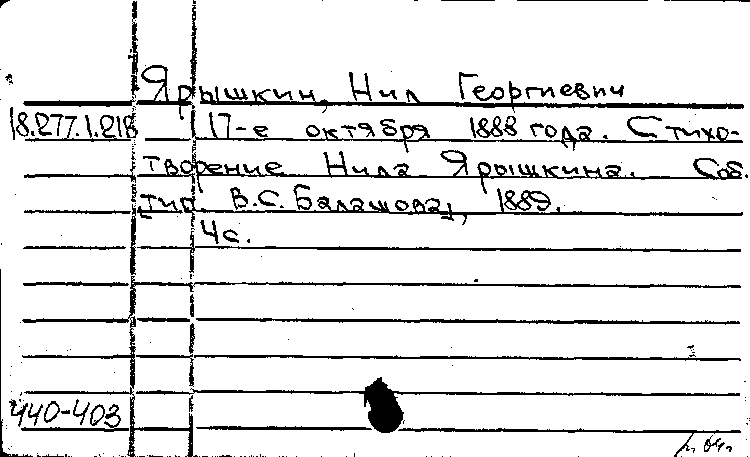 Ярышкин, Нил Георгиевич
18.277.1.218 17-е октября 1888 года. Стихо-
творение Нила Ярышкина. Соб.
[тип. В.С. Балашова], 1889.
4с.
440-403